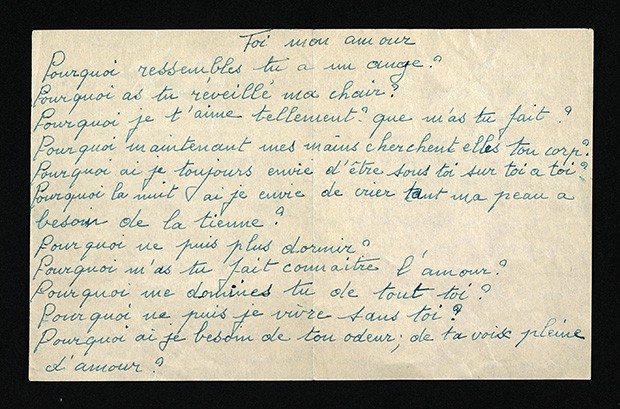 Toi mon amour
Pourquoi ressembles tu a un ange?
Pourquoi as tu réveillé ma chair?
Pourquoi je t'aime tellement? que m'as tu fait ?
Pourquoi maintenant mes mains cherchent elles ton corp?
Pourquoi ai je toujours envie d'être sous toi sur toi a toi?
Pourquoi la nuit ai je envie de crier tant ma peau a
besoin de la tienne ?
Pourquoi ne puis plus dormir?
Pourquoi m'as tu fait connaitre l'amour?
Pourquoi me domines tu de tout toi ?
Pourquoi ne puis je vivre sans toi ?
Pourquoi ai je besoin de ton odeur; de ta voix pleine
d'amour ?